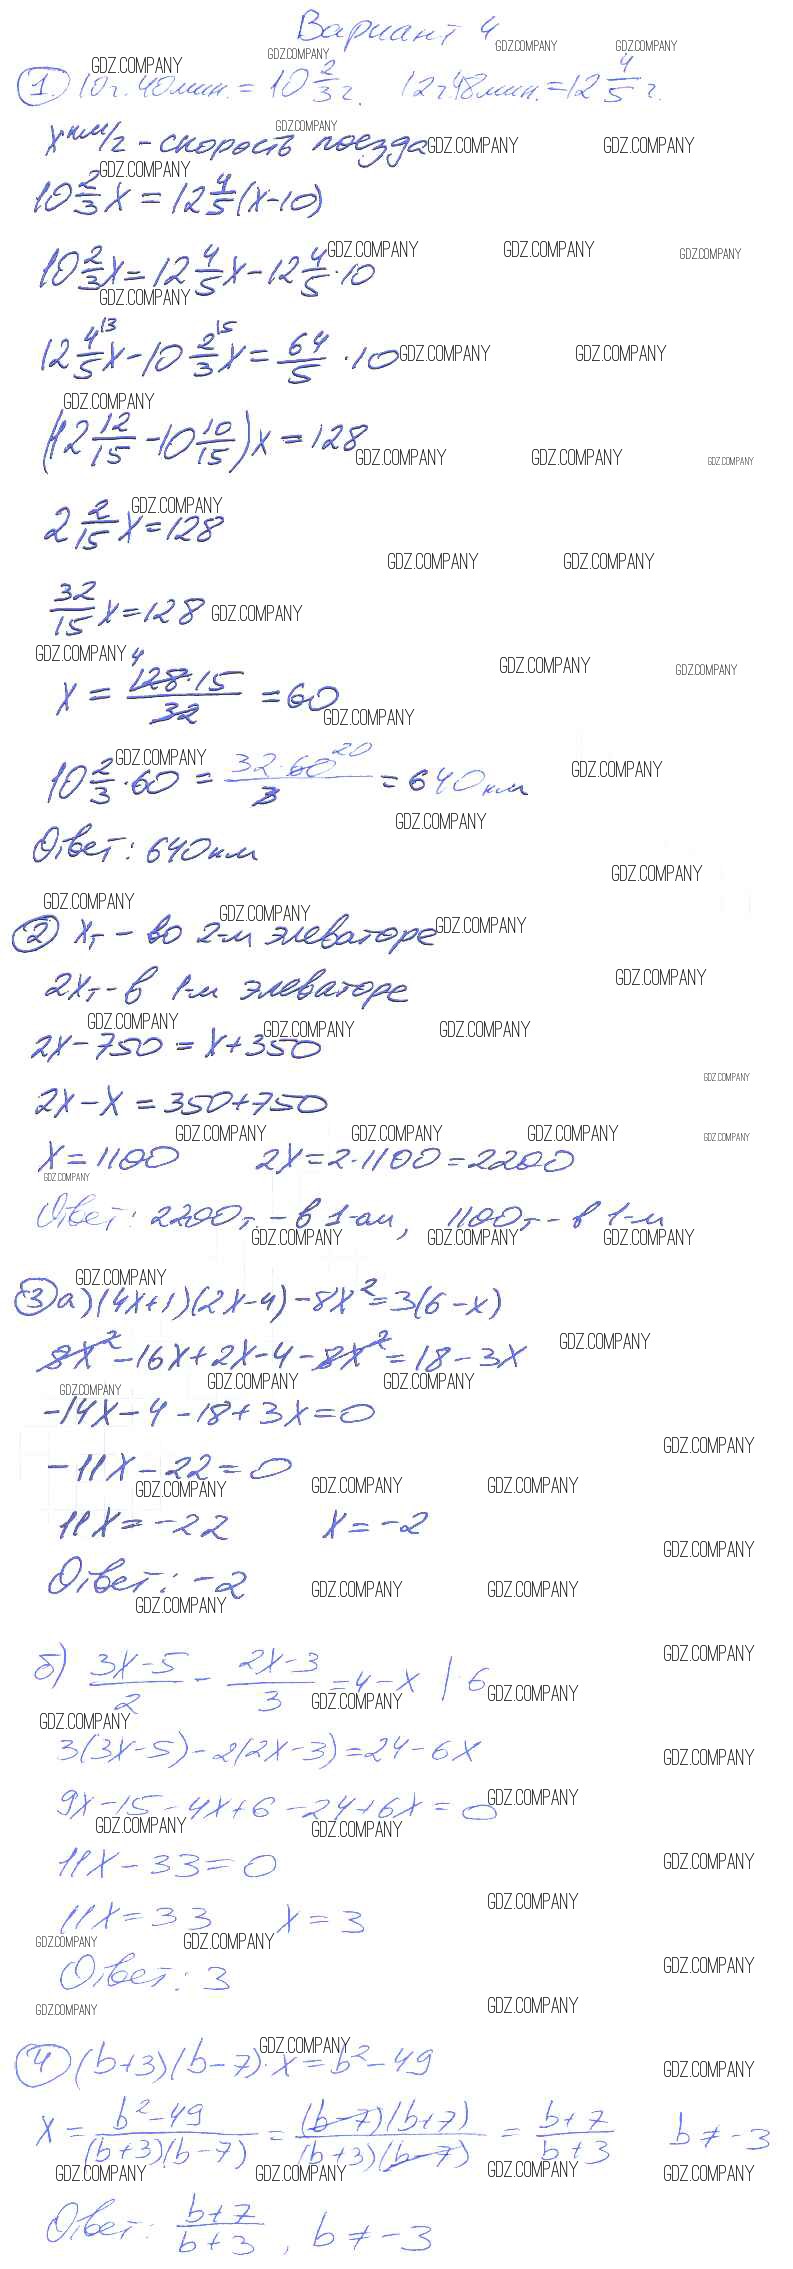 Вариант 4
① 10ч. 40мин. = 10 2/3 ч. 12ч48мин. = 12 4/5 ч.
x км/ч - скорость поезда
10 2/3 x = 12 4/5 (x-10)
10 2/3 x = 12 4/5 x - 12 4/5 · 10
12 4/5 x - 10 2/3 x = 64/5 · 10
(12 12/15 - 10 10/15) x = 128
2 2/15 x = 128
32/15 x = 128
x = 128·15/32 = 60
10 2/3 · 60 = 32·60/3 = 640 км
Ответ: 640 км
② xт - во 2-м элеваторе
2xт - в 1-м элеваторе
2x - 750 = x + 350
2x - x = 350 + 750
x = 1100 2x = 2·1100 = 2200
Ответ: 2200т. - в 1-ом, 1100т - в 1-м
③ а) (4x+1)(2x-4) - 8x² = 3(6-x)
8x² - 16x + 2x - 4 - 8x² = 18 - 3x
-14x - 4 - 18 + 3x = 0
-11x - 22 = 0
11x = -22 x = -2
Ответ: -2
б) (3x-5)/2 - (2x-3)/3 = 4 - x | 6
3(3x-5) - 2(2x-3) = 24 - 6x
9x - 15 - 4x + 6 - 24 + 6x = 0
11x - 33 = 0
11x = 33 x = 3
Ответ: 3
④ (b+3)(b-7)·x = b² - 49
x = (b²-49)/((b+3)(b-7)) = ((b-7)(b+7))/((b+3)(b-7)) = (b+7)/(b+3) b ≠ -3
Ответ: (b+7)/(b+3), b ≠ -3
GDZ.COMPANY